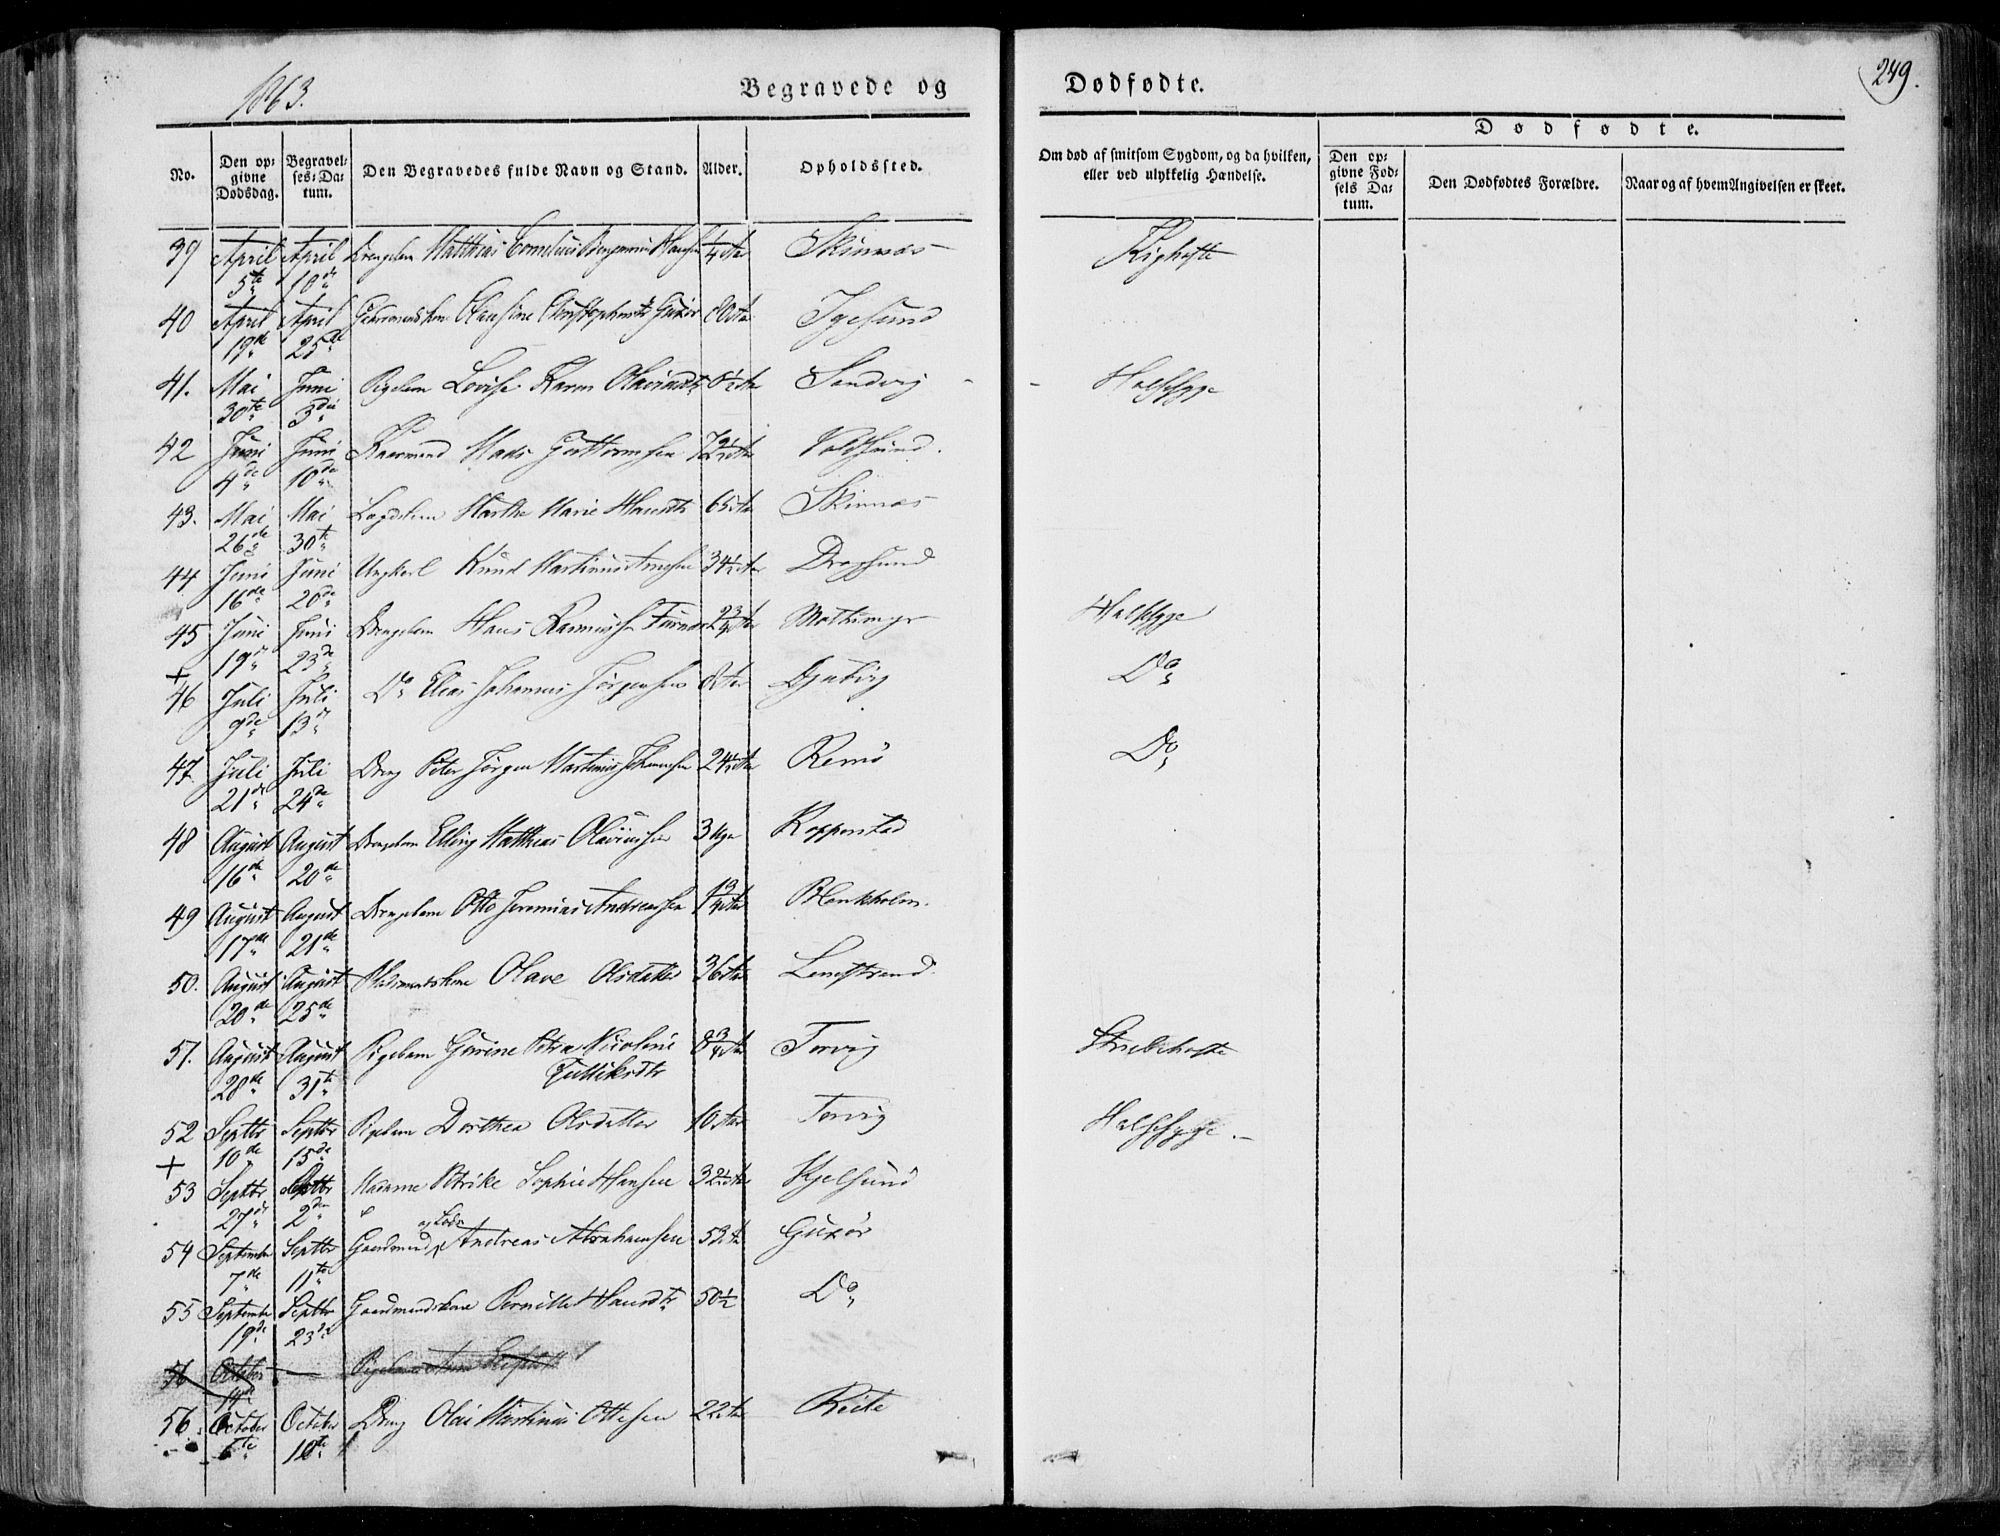 1863.
Begravede og Dødfødte.
249.
No.
Den opgivne Dødsdag.
Begravelses-Datum.
Den Begravedes fulde Navn og Stand.
Alder.
Opholdssted.
Om død af smitsom Sygdom, og da hvilken, eller ved ulykkelig Hændelse.
Dødfødte.
Den opgivne Fødsels Datum.
Den Dødfødtes Forældre.
Naar og af hvem Angivelsen er skeet.
39 April 5te April 10de Drengebarn Matthias Cornelius Benjamin Hansen 1/4 Aar Skinnæs Kighoste
40 April 19de April 25de 80 Aar Igesund
41. Mai 30te Juni 3die Pigebarn Lovise Karen 8 1/2 Aar Sandvig Halssyge
42 Juni 4de Juni 10de Kaarmand Mads Guttormsen 72 1/2 Aar Voldsund.
43. Mai 26de Mai 30te Marthe Marie Hansdtr 65 Aar Skinnæs
44 Juni 16de Juni 20de Ungkarl Knud Martinus 34 1/2 Aar Dragsund
45 Juni 19de Juni 23de Drengebarn Hans Rasmussen 2 3/4 Aar Halssyge
+
46 Juli 9de Juli 13de Do Elias Johannes Jørgensen 8 Aar Do
47. Juli 21de Juli 24de Dreng Peter Jørgen Martinus Johannesen 24 1/2 Aar Remø Do
48 August 16de August 20de Drengebarn Elling Matthias Olaiussen 3 Uger Kopperstad
49 August 17de August 21de Drengebarn Otto Jeremias Andreassen 1 3/4 Aar Blankholm.
50. August 20de August 25de Olave Olsdatter 36 Aar
51. August 28de August 31te Pigebarn Gurine Petra Nicoline 8 3/4 Aar Torvig Strubehoste
52 Septbr 10de Septbr 15de Pigebarn Dorthea Olsdatter 10 Aar Torvig Halssyge.
+
53 Septbr 27de Septbr 2den Madame Petrike Sophie Hansen 32 1/2 Aar Kjelsund
54 September 7de Septbr 11te Gaardmand og Lods Andreas Abrahamsen 52 Aar Gurøe
55 September 19de Septbr 23de Gaardmandskone Pernille Hansdtr 50 1/2 Do
56 October 14de Pigebarn
56. October 6te October 10de Dreng Olai Martinus Ottesen 22 Aar Reite